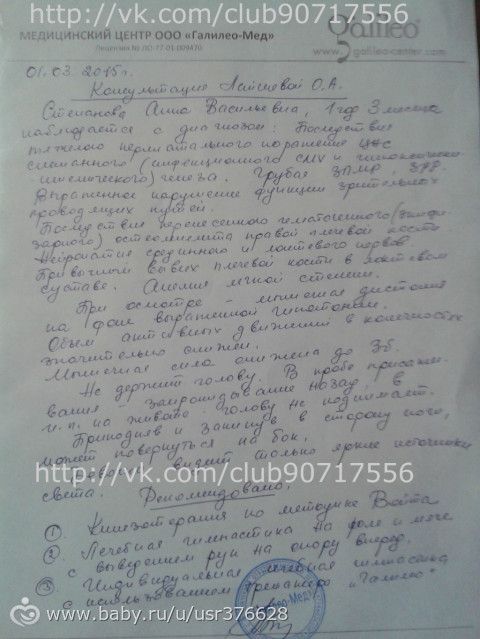 http://vk.com/club90717556
МЕДИЦИНСКИЙ ЦЕНТР ООО «Галилео-Мед»
Лицензия № ЛО-77-01-009470
galileo
www.galileo-center.com
01.03.2015г.
Консультация О.А.
Степанова Анна Васильевна, 1 год 3 месяца
наблюдается с диагнозом: Последствие
тяжелого перинатального поражения ЦНС
смешанного (инфекционного и гипоксически
-ишемического) генеза. Грубая ЗПМР, ЗРР.
Выраженное нарушение функции зрительных
проводящих путей.
Последствие перенесенного гематогенного (эпифи
зарного) остеомиелита правой плечевой кости
Нейропатие срединного и локтевого нервов.
Привычный вывих плечевой кости в локтевом
суставе. Анемия легкой степени.
При осмотре - мышечная дистония
на фоне выраженной гипотонии.
Объем активных движений в конечностях
значительно снижен.
Мышечная сила снижена до 3б.
Не держит голову. В пробе присажи-
вания - запрокидывание назад, в
и.п. на животе голову не поднимает.
Приподняв и закинув в сторону ногу,
может повернуться на бок.
видит только яркие источники
http://vk.com/club90717556
света. Рекомендовано:
① Кинезотерапия по методике Войта
② Лечебная гимнастика на фоле и мяче
с выведением рук на опору вперед.
③ Индивидуальная лечебная гимнастика
с использованием тренажера "Галилео"
www.baby.ru/u/usr376628